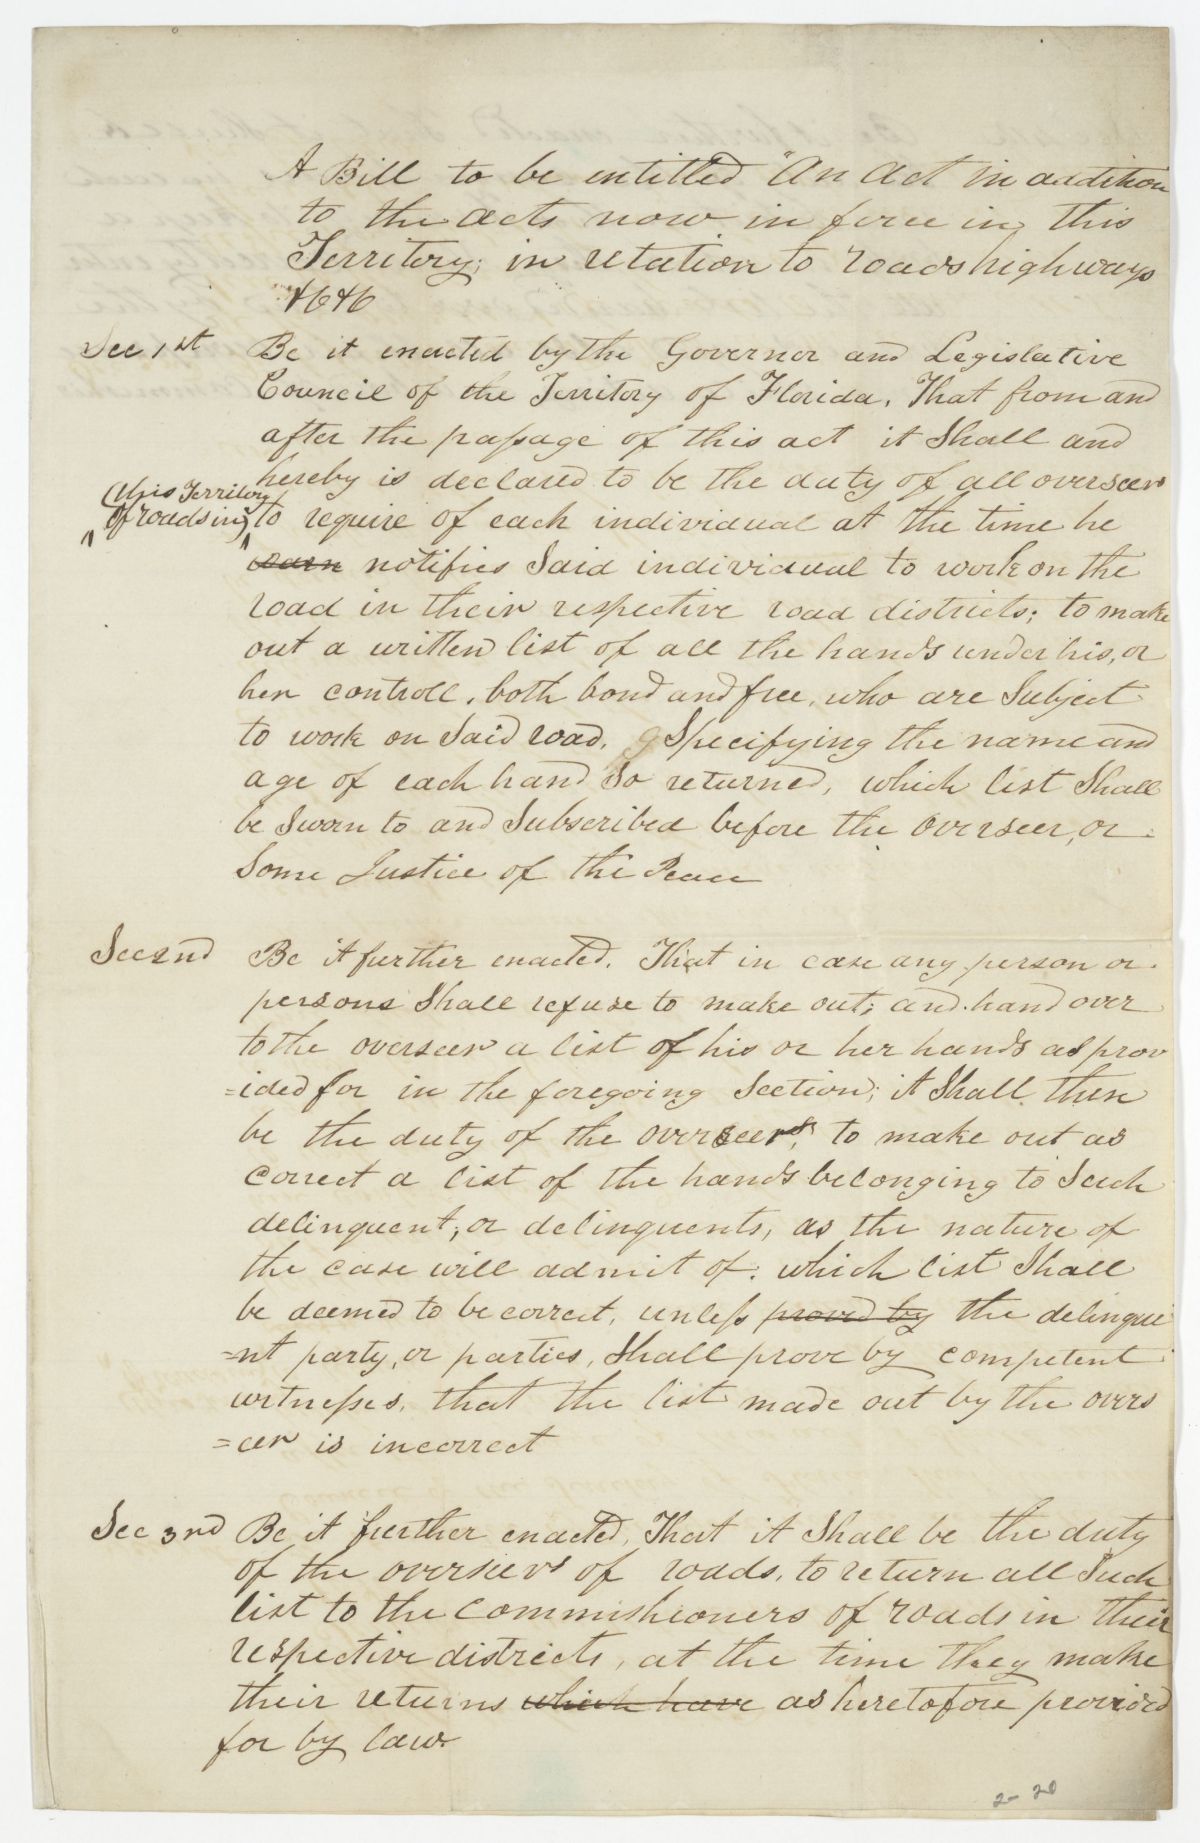 A Bill to be entitled "An Act in addition
to the acts now in force in this
Territory; in retation to roads highways
&c &c
Sec 1st Be it enacted by the Governor and Legislative
Council of the Territory of Florida, That from and
after the passage of this act it Shall and
hereby is declared to be the duty of all overseers
(this Territory
of roads in, to require of each individual at the time he
warn notifies Said individual to work on the
road in their respective road districts; to make
out a written list of all the hands under his, or
her controll, both bond and free, who are Subject
to work on Said road, Specifying the name and
age of each hand So returned, which list Shall
be Sworn to and Subscribed before the Overseer, or
Some Justice of the Peace
Sec 2nd Be it further enacted, That in case any person or
persons Shall refuse to make out; and hand over
to the overseer a list of his or her hands as prov
=ided for in the foregoing Section; it Shall then
be the duty of the overseers, to make out as
correct a list of the hands belonging to Such
delinquent, or delinquents, as the nature of
the case will admit of; which list Shall
be deemed to be correct, unless proved by the delinque
=nt party, or parties, Shall prove by competent
witnesses, that the list made out by the overs
=eer is incorrect
Sec 3rd Be it further enacted, That it Shall be the duty
of the overseers of roads, to return all Such
list to the commishioners of roads in their
respective districts, at the time they make
their returns which have as heretofore provided
for by law
2-20